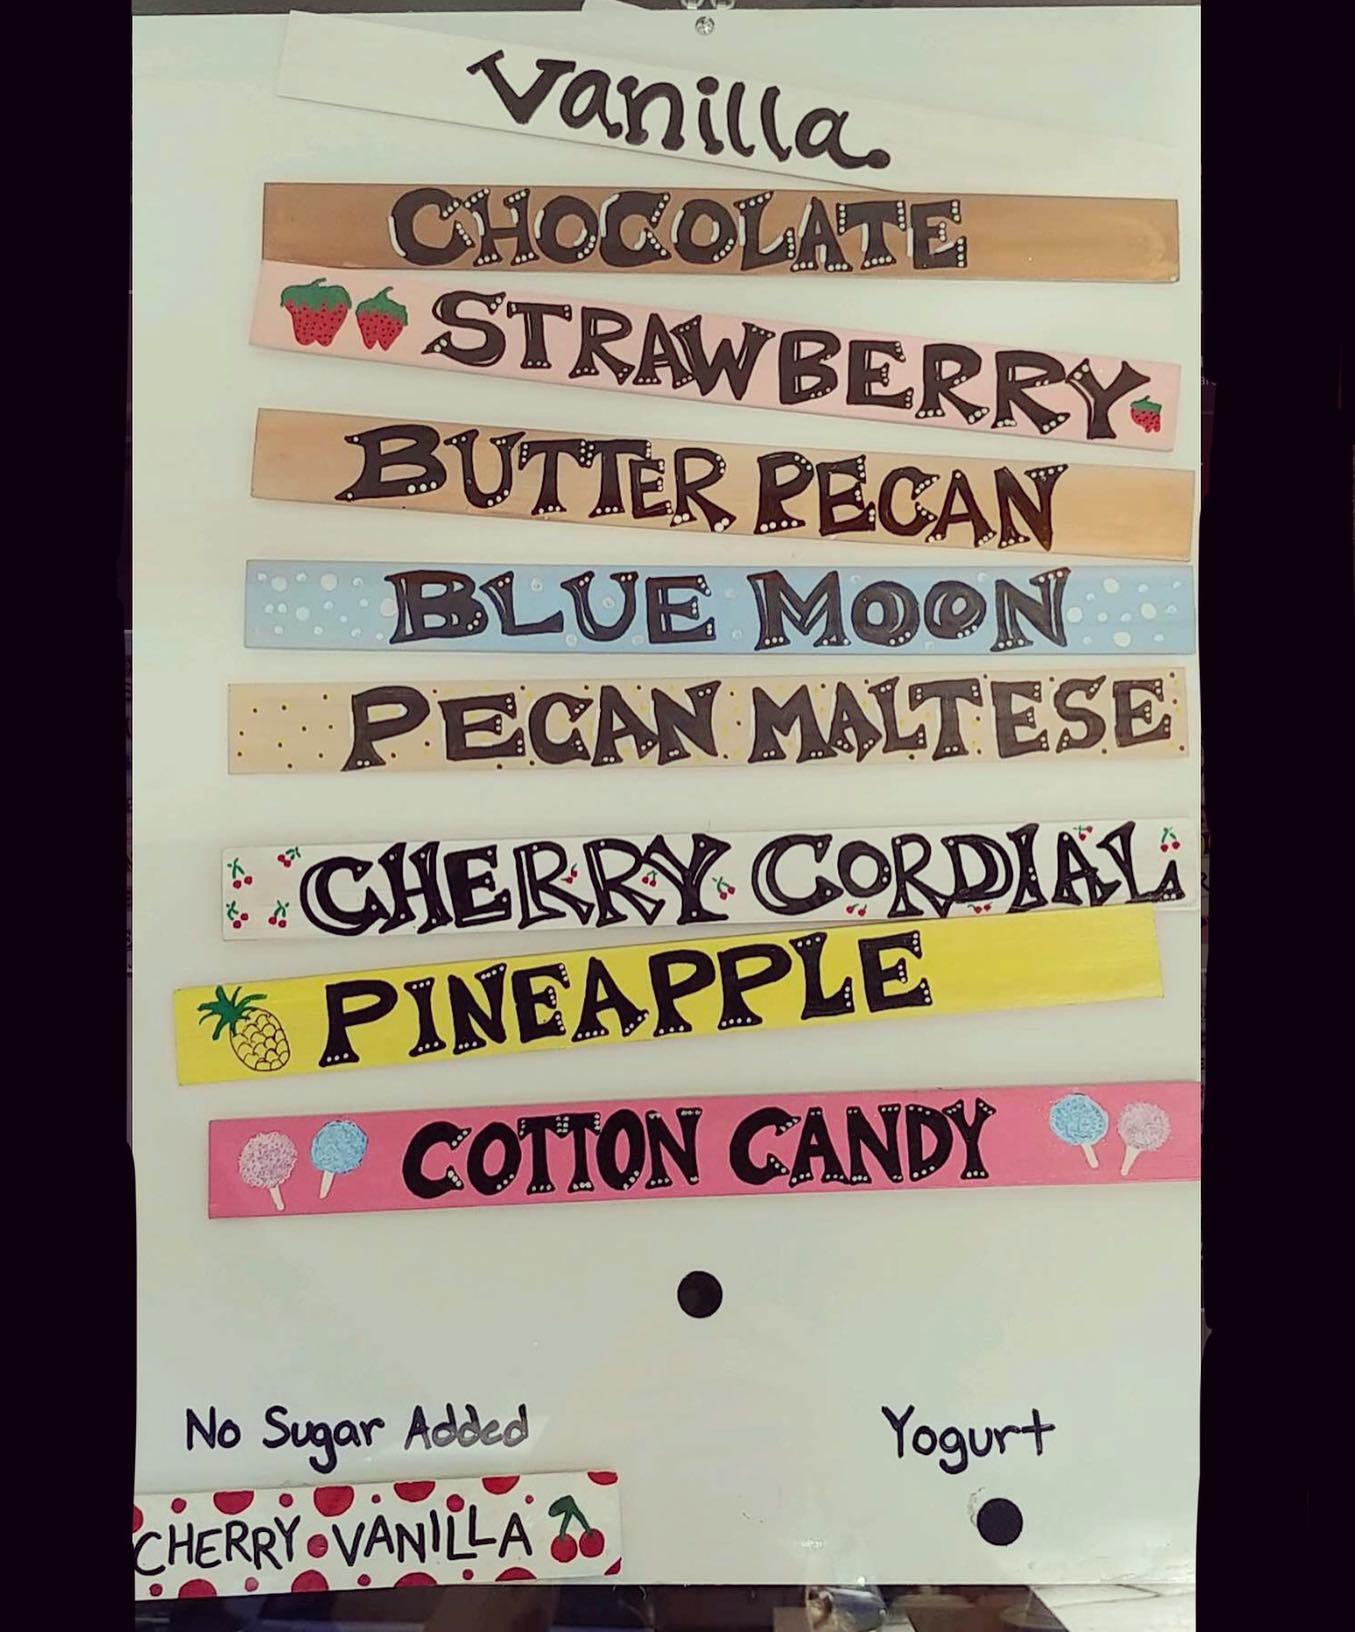 Vanilla
CHOCOLATE
STRAWBERRY
BUTTER PECAN
BLUE MOON
PECAN MALTESE
CHERRY CORDIAL
PINEAPPLE
COTTON CANDY
No Sugar Added
Yogurt
CHERRY VANILLA